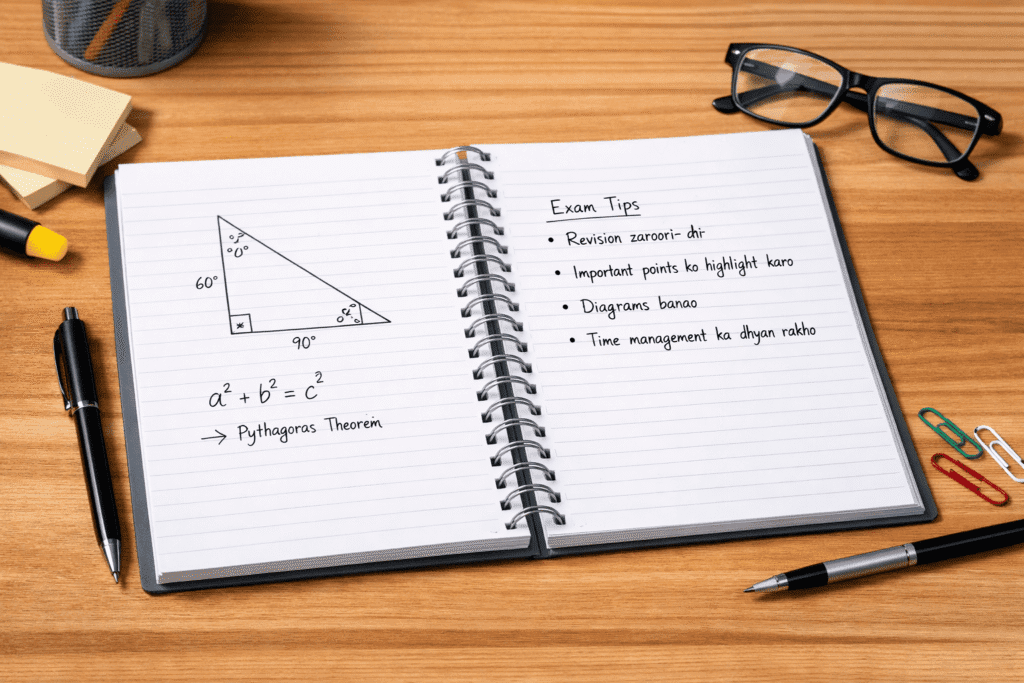 60°
90°
a² + b² = c²
→ Pythagoras Theorem
Exam Tips
• Revision zaroori-
• Important points ko highlight karo
• Diagrams banao
• Time management ka dhyan rakho